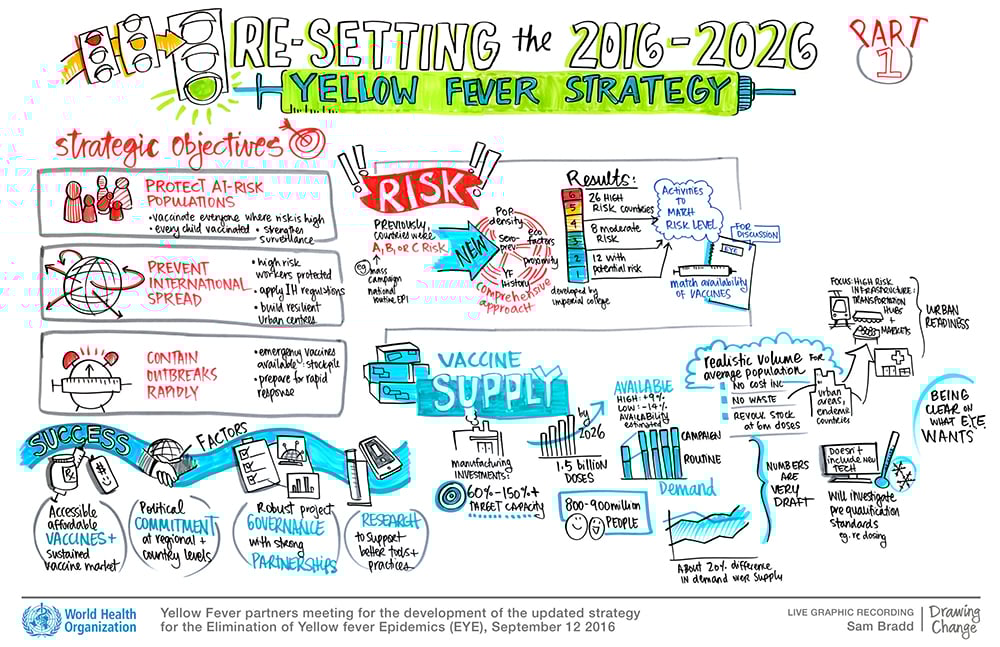 RE-SETTING the 2016-2026
YELLOW FEVER STRATEGY
PART
1
strategic objectives
PROTECT AT-RISK
POPULATIONS
• vaccinate everyone where risk is high
• every child vaccinated • strengthen
surveillance
PREVENT
INTERNATIONAL
SPREAD
• high risk
workers protected
• apply IH regulations
• build resilient
urban centres
CONTAIN
OUTBREAKS
RAPIDLY
• emergency vaccines
available: stockpile
• prepare for rapid
response
!! RISK !!
PREVIOUSLY,
COUNTRIES WERE
A, B, OR C RISK
eg mass
campaign
national
routine, EPI
NEW
POP
density
eco
factors
proximity
YF
History
Sero-
prev.
comprehensive
approach
Results:
6
5
4
3
2
1
26 HIGH
RISK countries
8 moderate
RISK
12 with
potential risk
developed by
imperial college
Activities
TO
MATCH
RISK LEVEL
FOR
DISCUSSION
EYE
match availability
of VACCINES
VACCINE
SUPPLY
manufacturing
INVESTMENTS:
60%-150%+
TARGET CAPACITY
by
2026
1.5 billion
DOSES
800-900 million
PEOPLE
AVAILABLE
HIGH: +9%
LOW: -14%
AVAILABILITY
estimated
CAMPAIGN
ROUTINE
Demand
About 20% difference
IN demand over supply
NUMBERS
ARE
VERY
DRAFT
realistic volume FOR
average population
NO COST INC
NO WASTE
REVOLV. STOCK
at 6m doses
urban
areas,
endemic
countries
FOCUS: HIGH RISK
INFRASTRUCTURE:
TRANSPORTATION
HUBS
+
MARKETS
URBAN
READINESS
Doesn't
include new
TECH
Will investigate
pre qualification
standards
eg. re dosing
BEING
CLEAR ON
WHAT EYE
WANTS
SUCCESS FACTORS
Accessible
affordable
VACCINES +
sustained
vaccine market
Political
COMMITMENT
at regional +
country levels
Robust project
GOVERNANCE
with strong
PARTNERSHIPS
RESEARCH
to support
better tools +
practices
World Health
Organization
Yellow Fever partners meeting for the development of the updated strategy
for the Elimination of Yellow fever Epidemics (EYE), September 12 2016
LIVE GRAPHIC RECORDING
Sam Bradd
Drawing
Change